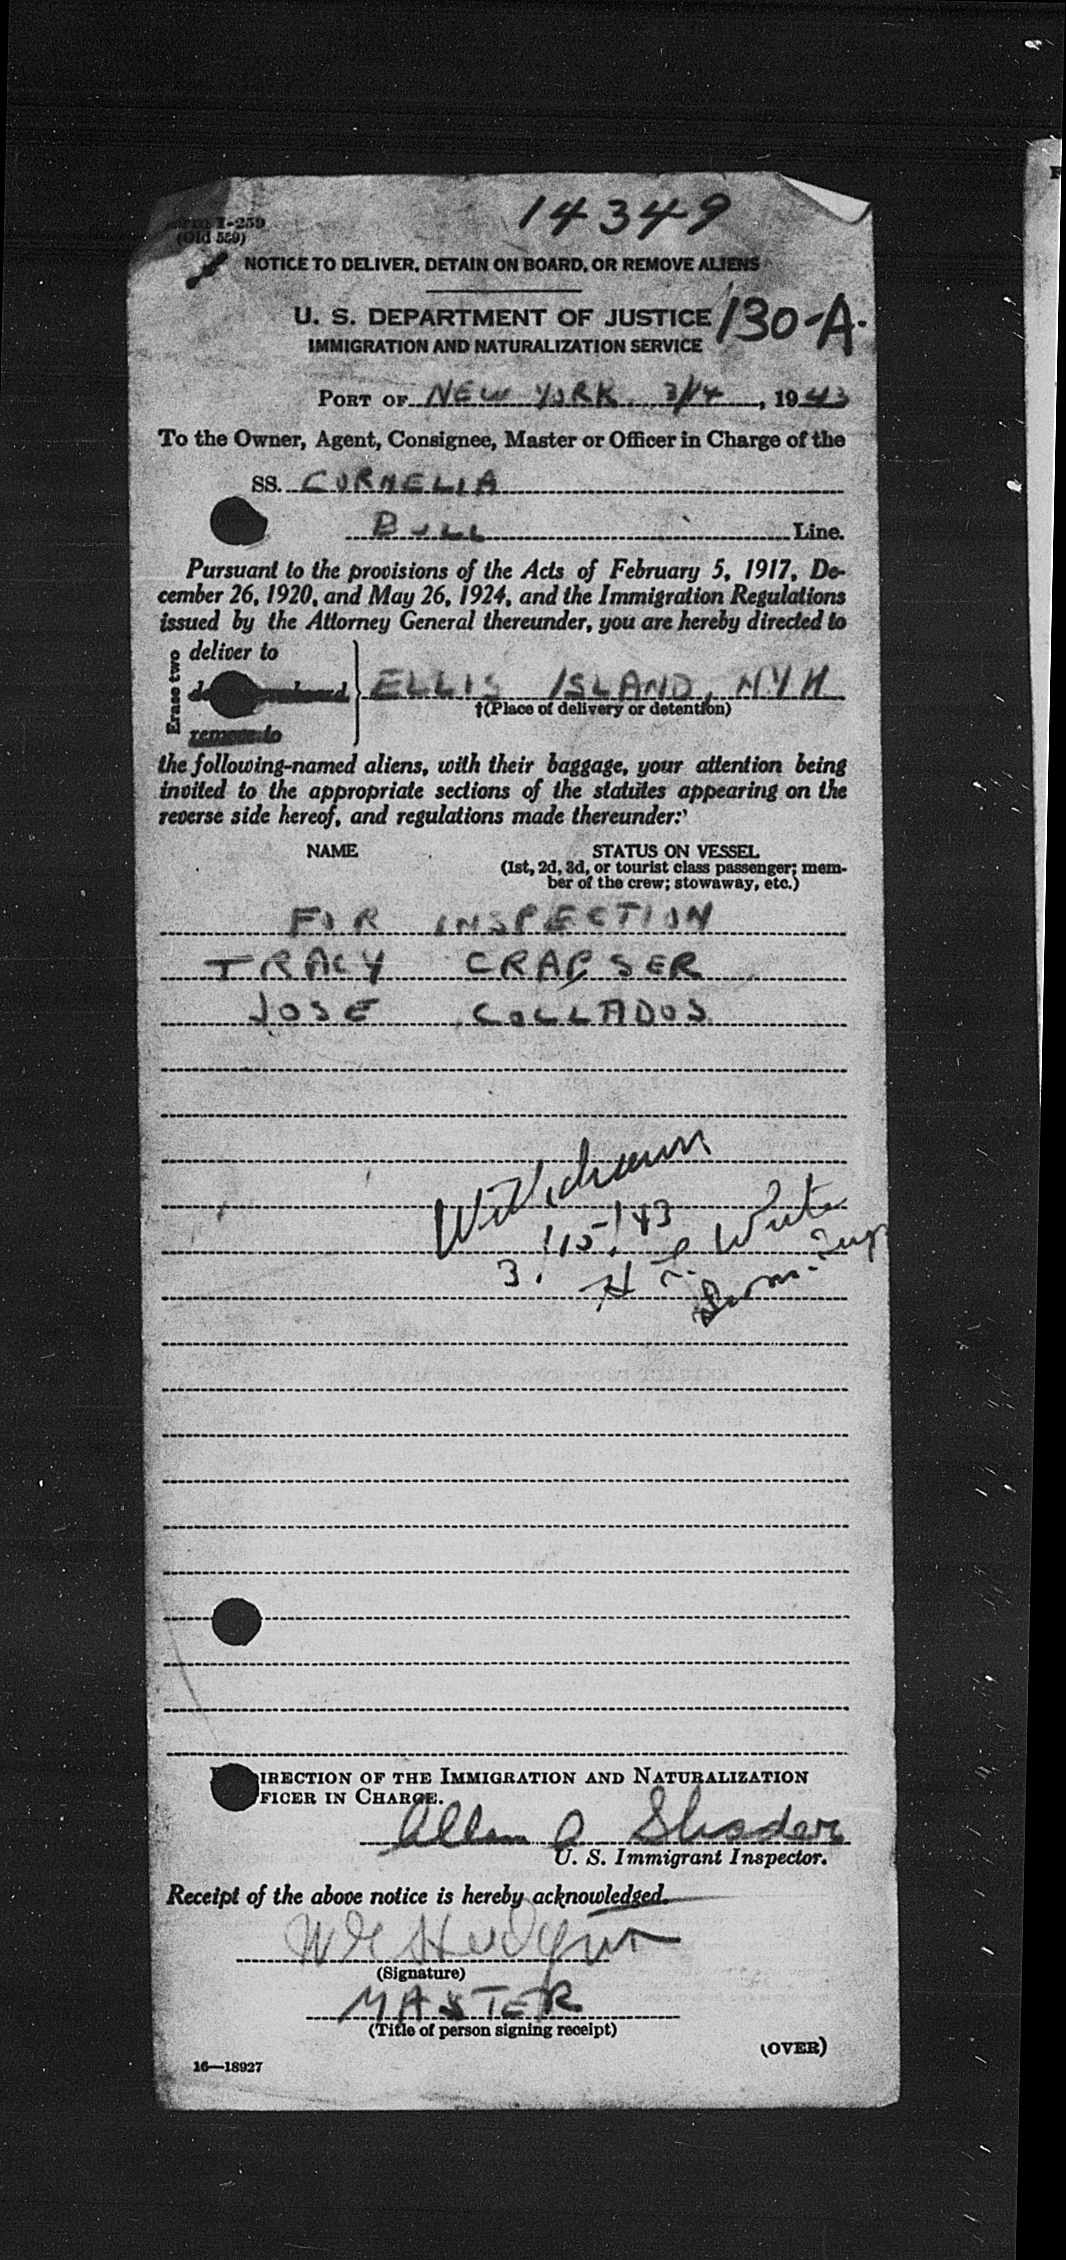 14349
Form I-259
(Old 559)
NOTICE TO DELIVER, DETAIN ON BOARD, OR REMOVE ALIENS
U. S. DEPARTMENT OF JUSTICE
130-A.
IMMIGRATION AND NATURALIZATION SERVICE
PORT OF NEW YORK 3/14, 1943
To the Owner, Agent, Consignee, Master or Officer in Charge of the
SS. CORNELIA
BULL Line.
Pursuant to the provisions of the Acts of February 5, 1917, De-
cember 26, 1920, and May 26, 1924, and the Immigration Regulations
issued by the Attorney General thereunder, you are hereby directed to
Erase two
deliver to
ELLIS ISLAND, NYH
†(Place of delivery or detention)
remove to
the following-named aliens, with their baggage, your attention being
invited to the appropriate sections of the statutes appearing on the
reverse side hereof, and regulations made thereunder:
NAME STATUS ON VESSEL
(1st, 2d, 3d, or tourist class passenger; mem-
ber of the crew; stowaway, etc.)
FOR INSPECTION
TRACY CRAPSER
JOSE COLLADOS
Withdrawn
3/15/43
H L. White
Imm. Insp
IRECTION OF THE IMMIGRATION AND NATURALIZATION
FICER IN CHARGE.
Allen
U. S. Immigrant Inspector.
Receipt of the above notice is hereby acknowledged.
(Signature)
MASTER
(Title of person signing receipt)
(OVER)
16—18927